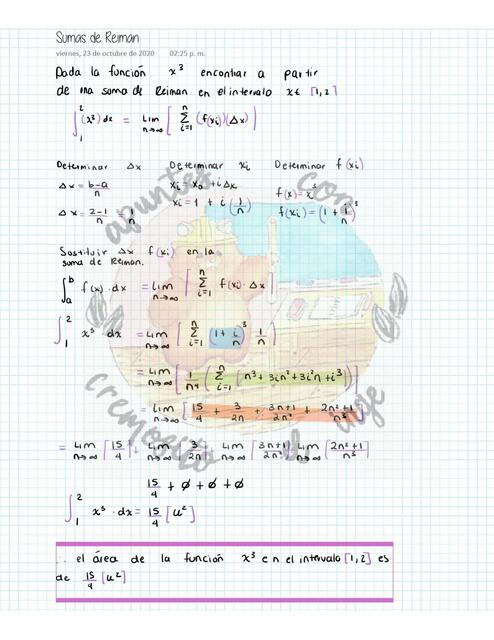 Sumas de Reiman
viernes, 23 de octubre de 2020 02:25 p. m.
Dada la función x³ encontrar a partir
de una suma de Reiman en el intervalo x∈ [1,2]
∫₁² (x³) dx = Lim n→∞ [ Σ i=1 n (f(xi))(Δx) ]
Determinar Δx Determinar xi Determinar f(xi)
Δx = b-a/n xi = x₀ + iΔx f(x) = x³
Δx = 2-1/n = 1/n xi = 1 + i(1/n) f(xi) = (1 + i/n)³
Sustituir Δx f(xi) en la
suma de Reiman.
∫ₐᵇ f(x) · dx = Lim n→∞ [ Σ i=1 n f(xi) · Δx ]
∫₁² x³ · dx = Lim n→∞ [ Σ i=1 n (1 + i/n)³ · 1/n ]
= Lim n→∞ [ 1/n⁴ ( Σ i=1 n [n³ + 3in² + 3i²n + i³] ) ]
= Lim n→∞ [ 15/4 + 3/2n + 3n+1/2n² + 2n²+1/n³ ]
= Lim n→∞ [15/4] + Lim n→∞ [3/2n] + Lim n→∞ [3n+1/2n²] Lim n→∞ [2n²+1/n³]
15/4 + ∅ + ∅ + ∅
∫₁² x³ · dx = 15/4 [u²]
∴ el área de la función x³ en el intervalo [1,2] es
de 15/4 [u²]
apuntes con
cremosito